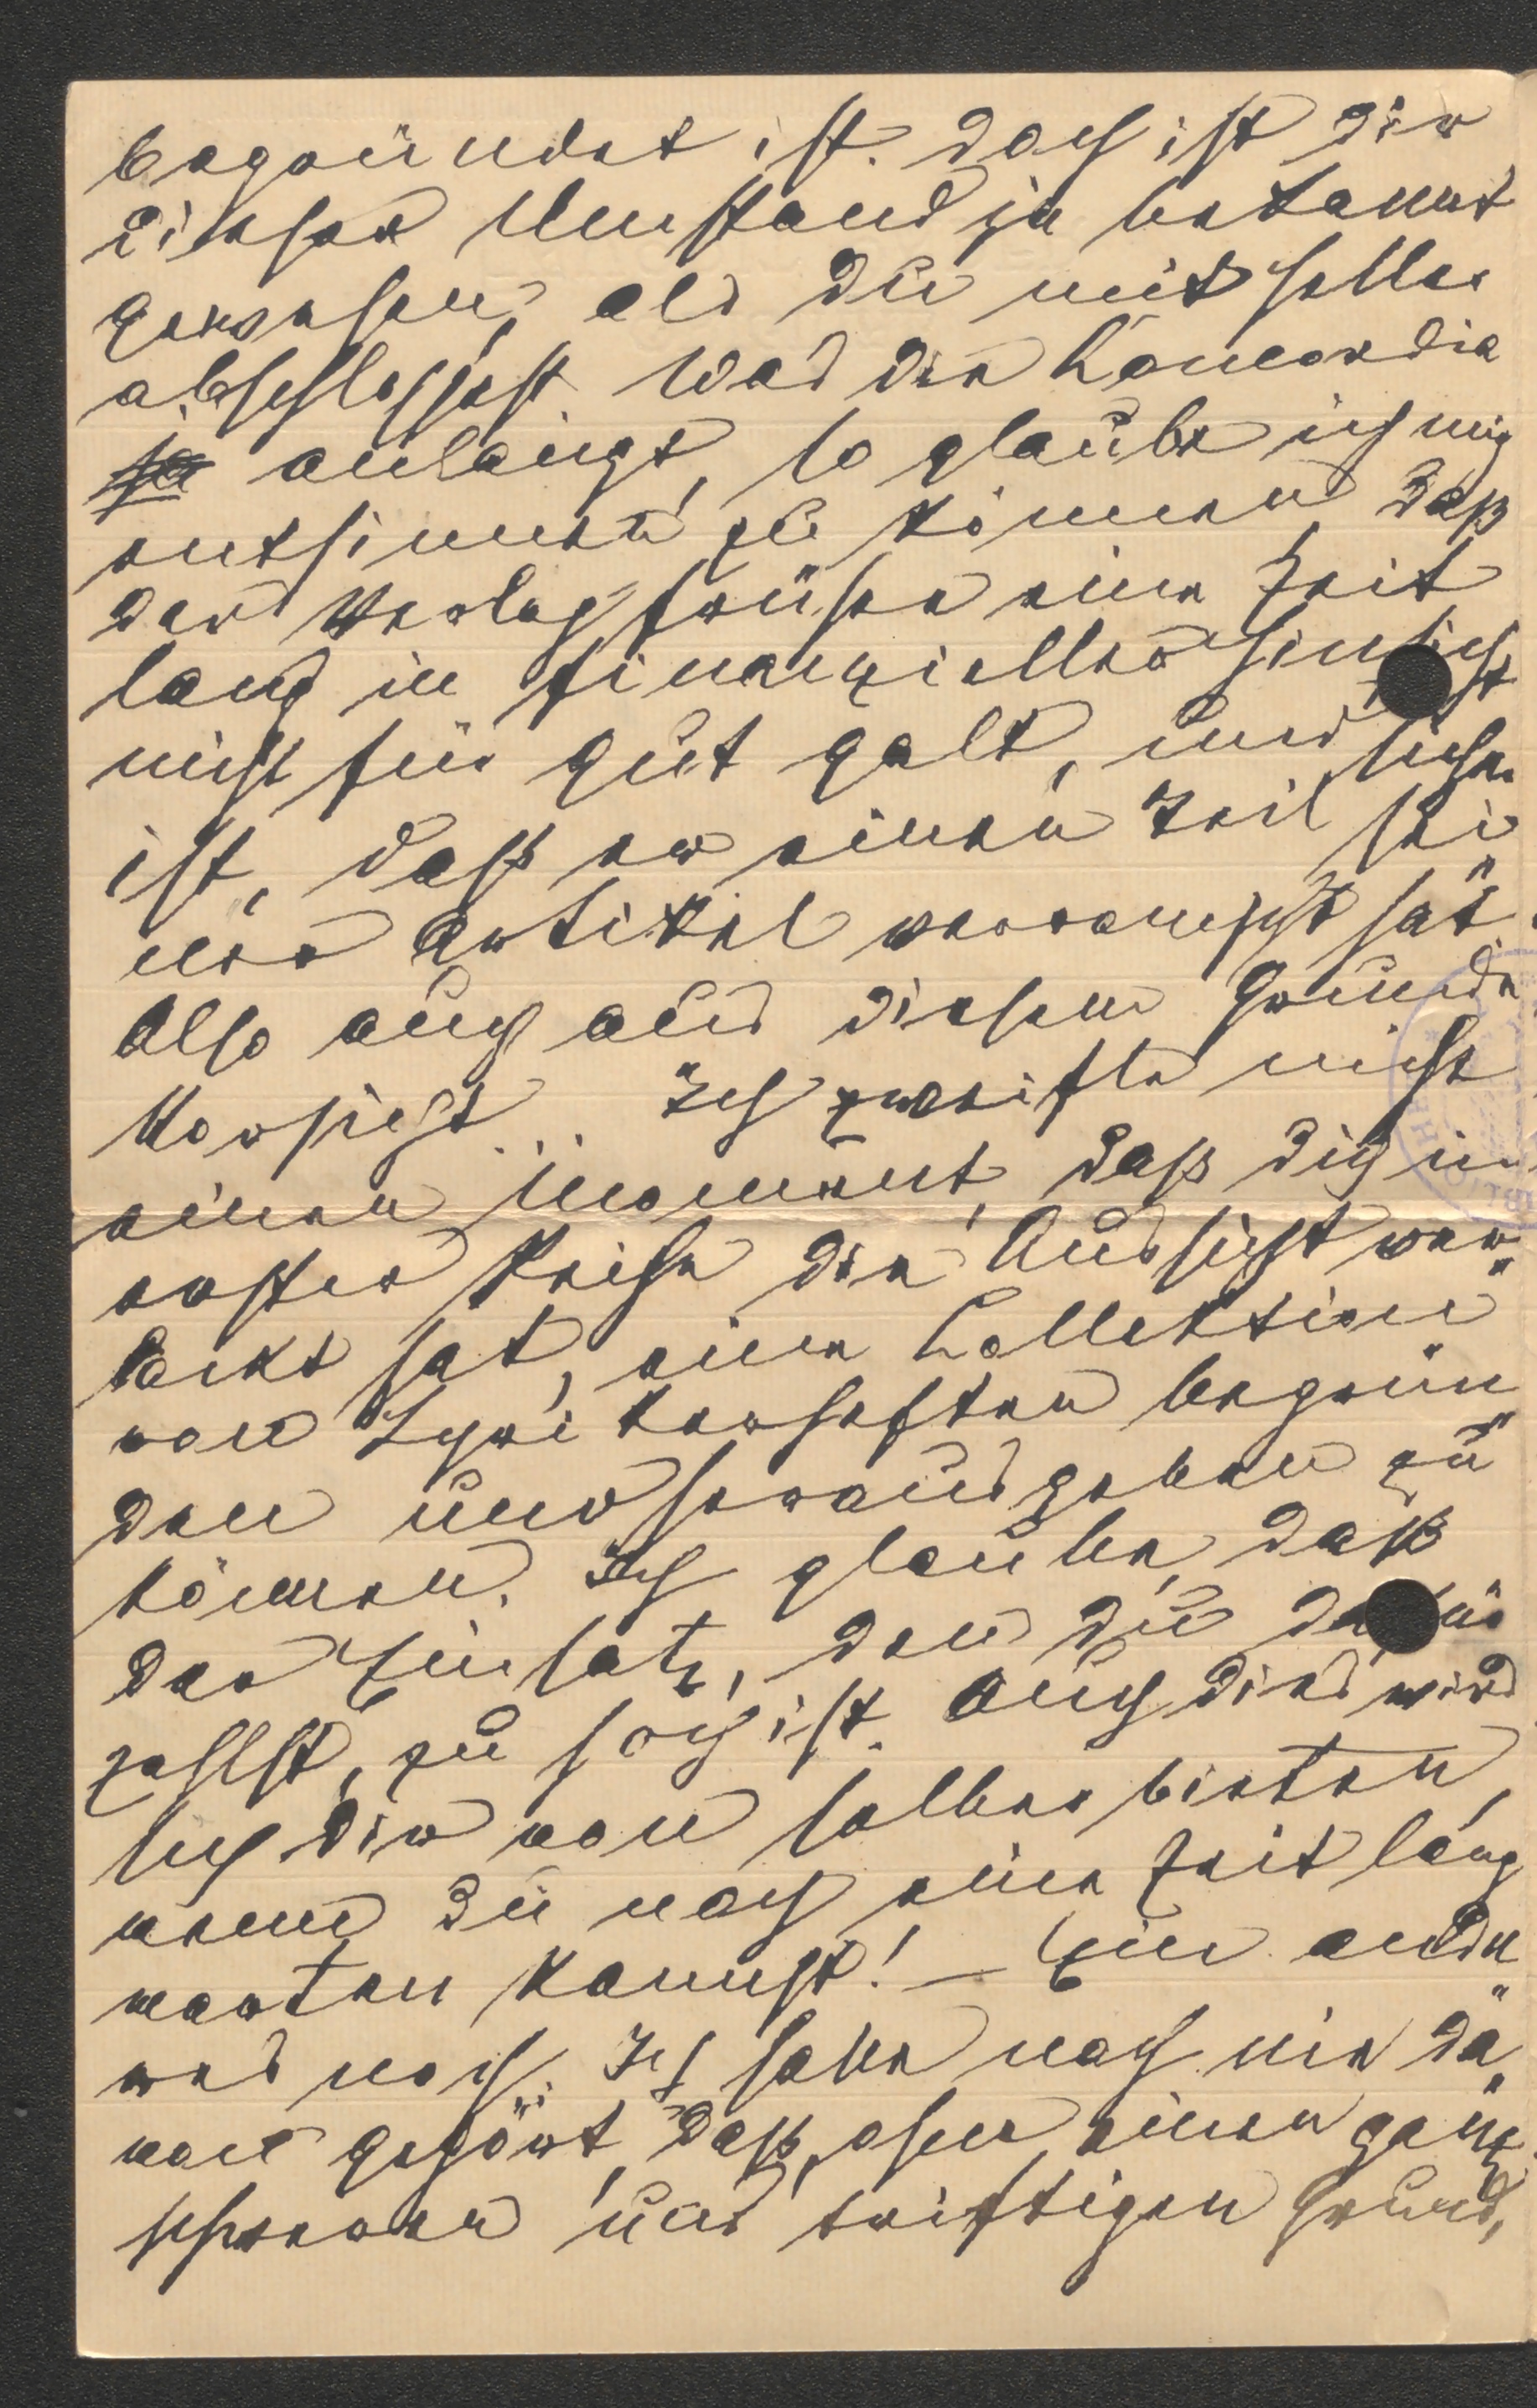 begründet ist. Doch ist Dir
dieser Umstand ja bekannt
gewesen, als Du mit selber
abschlossest. Was die Concordia
anlangt, so glaube ich mich
entsinnen zu können, daß
der Verlag früher eine Zeit
lang in finanzieller Hinsicht
nicht für gut galt, und sicher
ist, daß er einen Teil sei
ner Artikel verramscht hat.
Also auch aus diesem Grunde
Vorsicht. Ich zweifle nicht
einen Moment, daß Dich in
erster Reihe die Aussicht ver-
lockt hat, eine Collektion
von Lyrikerheften begrün
den und herausgeben zu
können. Ich glaube, daß
der Einsatz, den Du dafür
zahlst, zu hoch ist. Auch dies wird
sich Dir von selber bieten,
wenn Du noch eine Zeit lang
warten kannst! – Ein ande
res noch. Ich habe noch nie da-
von gehört, daß, ohne einen ganz
schweren und triftigen Grund,